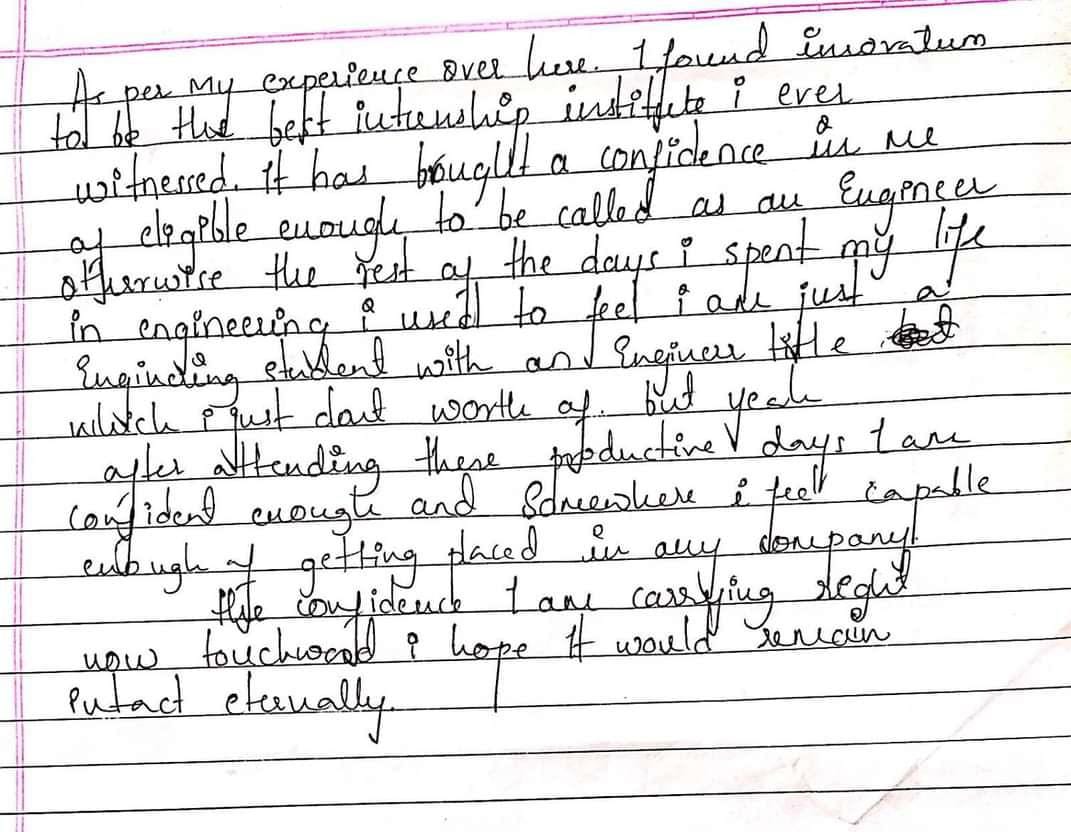 As per My experience over here. I found innovatum
to be the best internship institute i ever
witnessed. It has bought a confidence in me
of eligible enough to be called as an Engineer
otherwise the rest of the days i spent my life
in engineering i used to feel i am just a
Engineering student with an Engineer title
which i just dont worth of. but yeah
after attending these productive days I am
confident enough and Somewhere i feel capable
enough of getting placed in any company.
the confidence I am carrying right
now touchwood i hope It would remain
intact eternally.